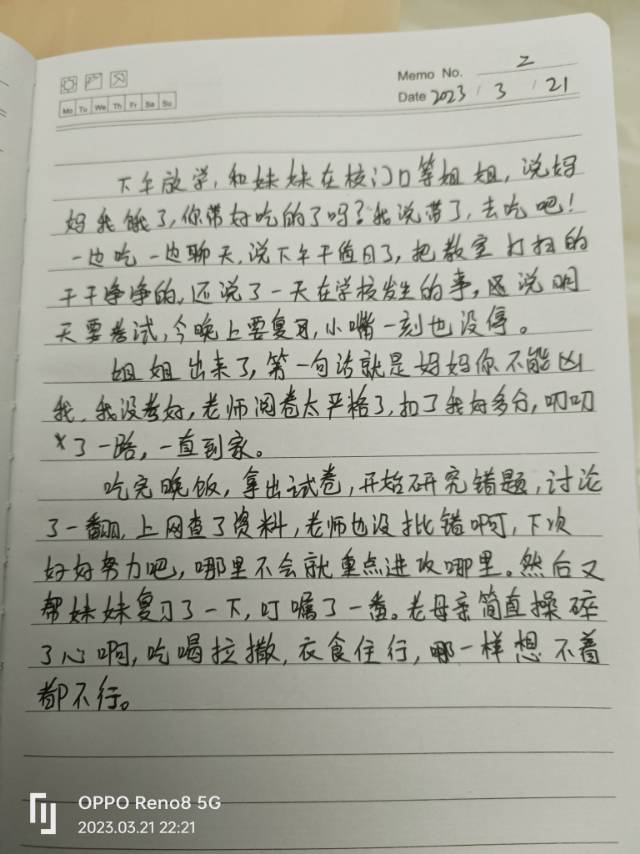 Memo No. 2
Mo Tu We Th Fr Sa Su
Date 2023 / 3 / 21
下午放学,和妹妹在校门口等姐姐,说妈
妈我饿了,你带好吃的了吗?我说带了,去吃吧!
一边吃一边聊天,说下午干值日了,把教室打扫的
干干净净的,还说了一天在学校发生的事,还说明
天要考试,今晚上要复习,小嘴一刻也没停。
姐姐出来了,第一句话就是妈妈你不能凶
我,我没考好,老师阅卷太严格了,扣了我好多分,叨叨
了一路,一直到家。
吃完晚饭,拿出试卷,开始研究错题,讨论
了一翻,上网查了资料,老师也没批错啊,下次
好好努力吧,哪里不会就重点进攻哪里。然后又
帮妹妹复习了一下,叮嘱了一番。老母亲简直操碎
了心啊,吃喝拉撒,衣食住行,哪一样想不着
都不行。
OPPO Reno8 5G
2023.03.21 22:21